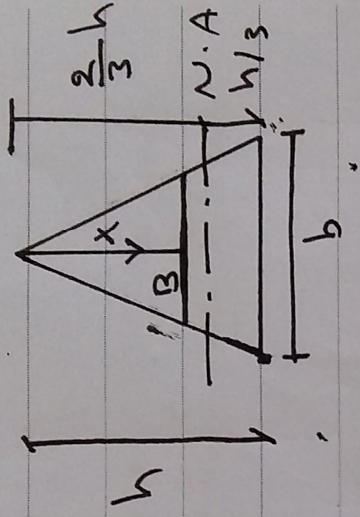 2/3 h
N.A
h/3
x
B
h
b